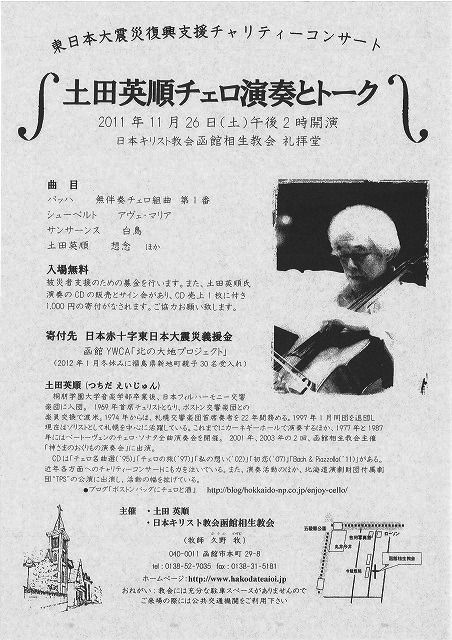 東日本大震災復興支援チャリティーコンサート
土田英順チェロ演奏とトーク
2011年11月26日(土)午後2時開演
日本キリスト教会函館相生教会 礼拝堂
曲 目
バッハ 無伴奏チェロ組曲 第1番
シューベルト アヴェ・マリア
サンサーンス 白鳥
土田英順 想念 ほか
入場無料
被災者支援のための募金を行います。また、土田英順氏
演奏のCDの販売とサイン会があり、CD売上1枚に付き
1,000円の寄付がなされます。ご協力お願い致します。
寄付先 日本赤十字東日本大震災義援金
函館YWCA「北の大地プロジェクト」
(2012年1月冬休みに福島県新地町親子30名受入れ)
土田英順(つちだ えいじゅん)
桐朋学園大学音楽学部卒業後、日本フィルハーモニー交響
楽団に入団。1969年首席チェリストとなり、ボストン交響楽団との
楽員交換で渡米。1974年からは、札幌交響楽団首席奏者を22年間務める。1997年1月同団を退団し
現在はソリストとして札幌を中心に活躍している。これまでにカーネギーホールで演奏するほか、1977年と1987
年にはベートーヴェンのチェロ・ソナタ全曲演奏会を開催。2001年、2003年の2回、函館相生教会主催
「神さまのおりもの演奏会」に出演。
CDは「チェロ名曲選('95)」「チェロの旅('97)」「私の想い('02)」「初恋('07)」「Bach & Piazzolla('11)」がある。
近年各方面へのチャリティーコンサートにも力を注いでいる。また、演奏活動のほか、北海道演劇財団付属劇
団"TPS"の公演に出演し、活動の幅を拡げている。
●ブログ「ボストンバッグにチェロと酒」 http://blog/hokkaido-np.co.jp/enjoy-cello/
主催 ・土田 英順
・日本キリスト教会函館相生教会
(牧師 久野 牧)
040-0011 函館市本町29-8
tel:0138-52-9035 fax:0138-31-5181
ホームページ:http://www.hakodateaioi.jp
おねがい:教会には充分な駐車スペースがありませんので
ご来場の際には公共交通機関をご利用下さい
五稜郭公園
丸井今井
ローソン
函館相生教会